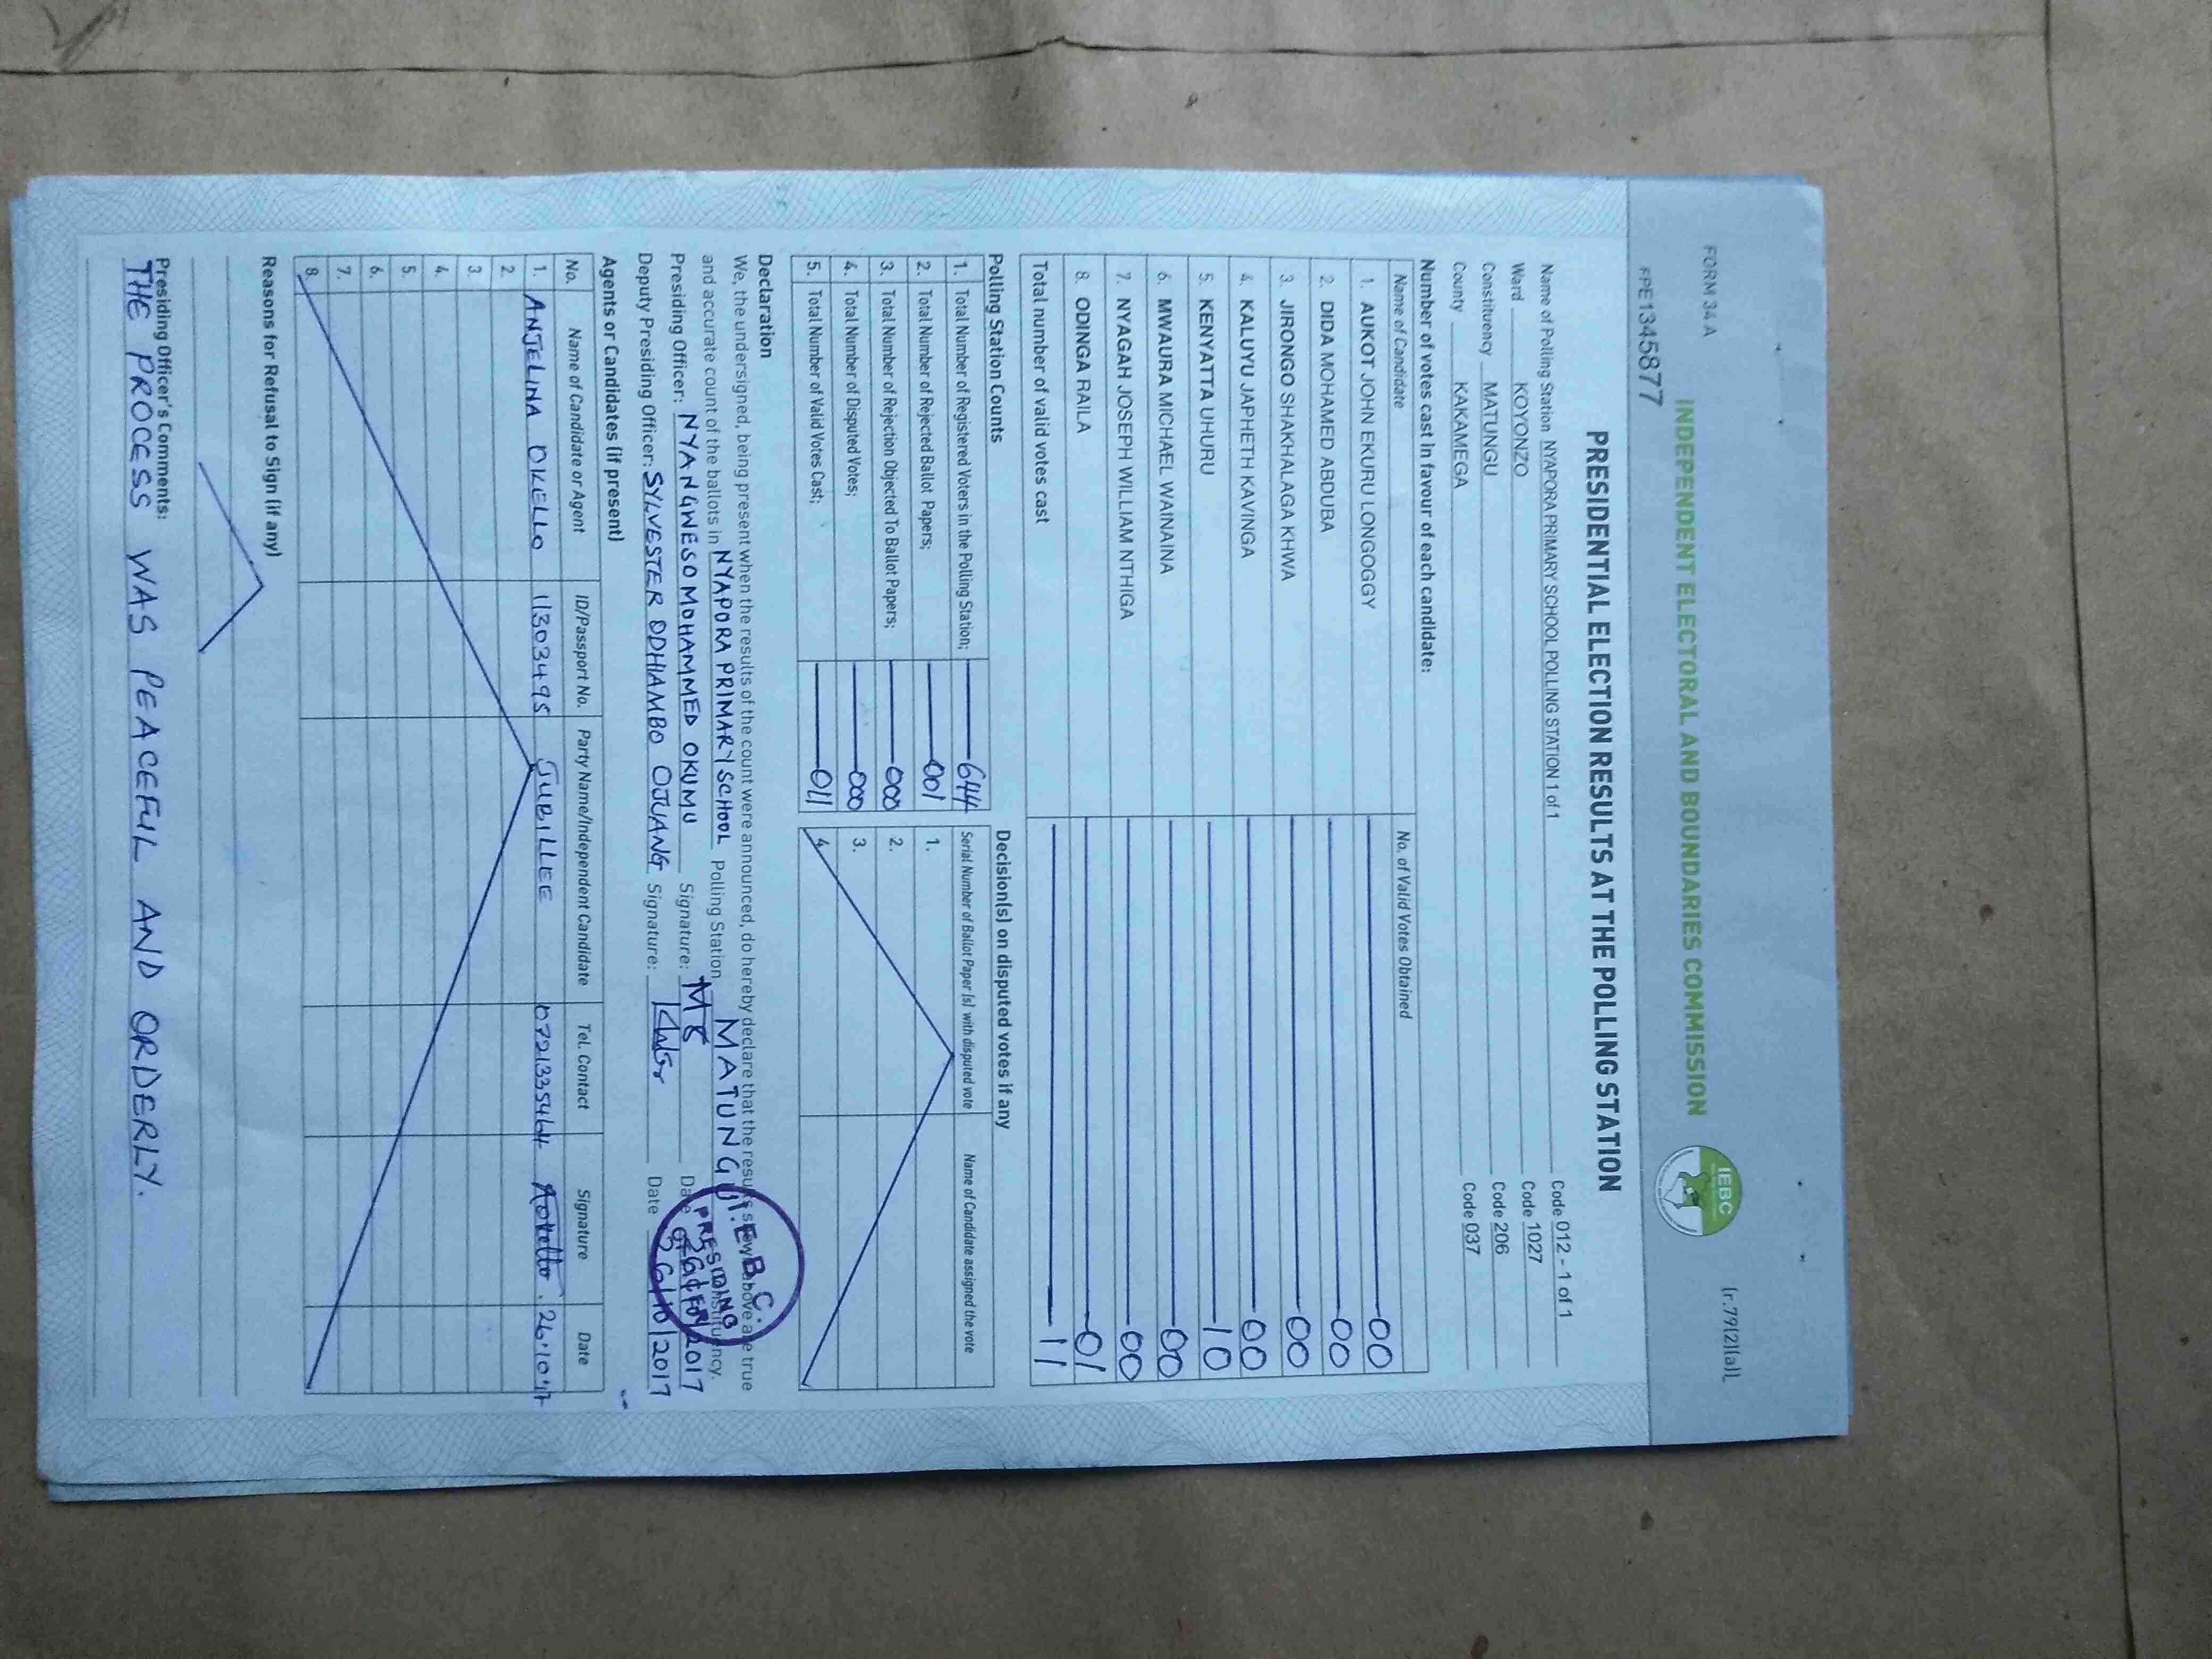 FORM 34 A
(r.79(2)(a))
INDEPENDENT ELECTORAL AND BOUNDARIES COMMISSION
IEBC
PRESIDENTIAL ELECTION RESULTS AT THE POLLING STATION
Name of Polling Station NYAPORA PRIMARY SCHOOL POLLING STATION 1 of 1 Code 012 - 1 of 1
Ward KOYONZO Code 1027
Constituency MATUNGU Code 206
County KAKAMEGA Code 037
Number of votes cast in favour of each candidate:
Name of Candidate No. of Valid Votes Obtained
1. AUKOT JOHN EKURU LONGOGGY 00
2. DIDA MOHAMED ABDUBA 00
3. JIRONGO SHAKHALAGA KHWA 00
4. KALUYU JAPHETH KAVINGA 00
5. KENYATTA UHURU 10
6. MWAURA MICHAEL WAINAINA 00
7. NYAGAH JOSEPH WILLIAM NTHIGA 00
8. ODINGA RAILA 01
Total number of valid votes cast 11
Polling Station Counts
1. Total Number of Registered Voters in the Polling Station; 644
2. Total Number of Rejected Ballot Papers; 001
3. Total Number of Rejection Objected To Ballot Papers; 000
4. Total Number of Disputed Votes; 000
5. Total Number of Valid Votes Cast; 011
Decision(s) on disputed votes if any
Serial Number of Ballot Paper (s) with disputed vote Name of Candidate assigned the vote
1.
2.
3.
4.
Declaration
We, the undersigned, being present when the results of the count were announced, do hereby declare that the results shown above are true
and accurate count of the ballots in NYAPORA PRIMARY SCHOOL Polling Station, MATUNGU Constituency.
Presiding Officer: NYANGWESO MOHAMMED OKUMU Signature: Date 26/10/2017
Deputy Presiding Officer: SYLVESTER ODHIAMBO OJUANG Signature: Date 26/10/2017
I.E.B.C.
PRESIDING
OFFICER
Agents or Candidates (if present)
No. Name of Candidate or Agent ID/Passport No. Party Name/Independent Candidate Tel. Contact Signature Date
1. ANJELINA OKELLO 11303495 JUBILLEE 0721335464 26.10.17
2.
3.
4.
5.
6.
7.
8.
Reasons for Refusal to Sign (if any)
Presiding Officer's Comments:
THE PROCESS WAS PEACEFUL AND ORDERLY.